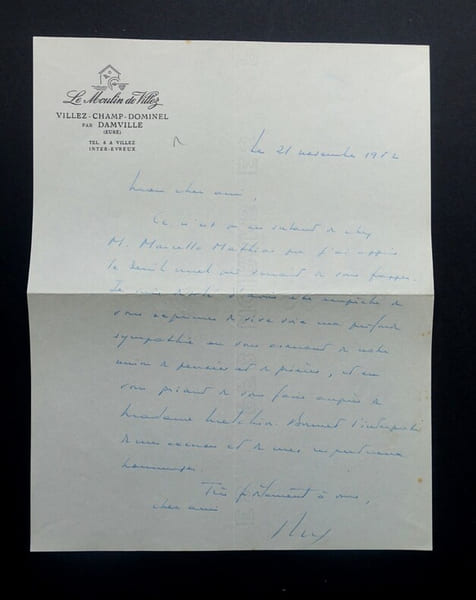 Le Moulin de Villez
VILLEZ-CHAMP-DOMINEL
PAR DAMVILLE
(EURE)
TEL. 4 A VILLEZ
INTER-EVREUX
Le 21 novembre 1952
Mon cher ami,
Ce n'est qu'en rentrant de chez
M. Marcelle Mathieu que j'ai appris
le deuil cruel qui venait de vous frapper.
Je suis
vous exprimer de vive voix ma profonde
sympathie en vous assurant de notre
union de pensées et de prières, et en
vous priant de vous faire auprès de
Madame Bonnet l'interprète
de mes excuses et de mes respectueux
hommages.
Très fidèlement à vous,
cher ami